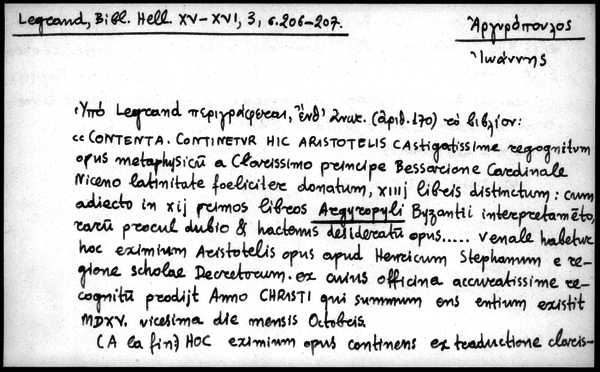 Legrand, Bibl. Hell. XV–XVI, 3, σ. 206-207.
Ἀργυρόπουλος
Ἰωάννης
Ὑπό Legrand περιγράφεται, ἔνθ' ἀνωτ. (ἀριθ. 170) τὸ βιβλίον:
«CONTENTA. CONTINETVR HIC ARISTOTELIS castigatissime recognitum
opus metaphysicū a Clarissimo principe Bessarione Cardinale
Niceno latinitate foeliciter donatum, xiiij libris distinctum: cum
adiecto in xij primos libros Argyropyli Byzantii interpretamēto,
rarū procul dubio & hactenus desideratū opus..... venale habetur
hoc eximium Aristotelis opus apud Henricum Stephanum e re-
gione scholae Decretorum. ex cuius officina accuratissime re-
cognitū prodijt Anno CHRISTI qui summum ens entium existit
MDXV. vicesima die mensis Octobris.
(A la fin) HOC eximium opus continens ex traductione claris-